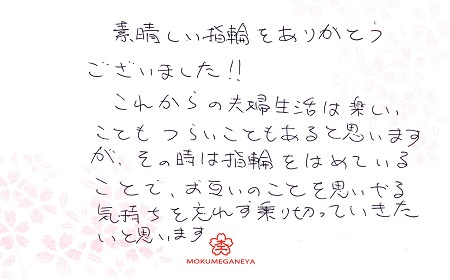 素晴しい指輪をありがとう
ございました!!
これからの夫婦生活は楽しい
こともつらいこともあると思います
が、その時は指輪をはめている
ことで、お互いのことを思いやる
気持ちを忘れず乗り切っていきた
いと思います
MOKUMEGANEYA